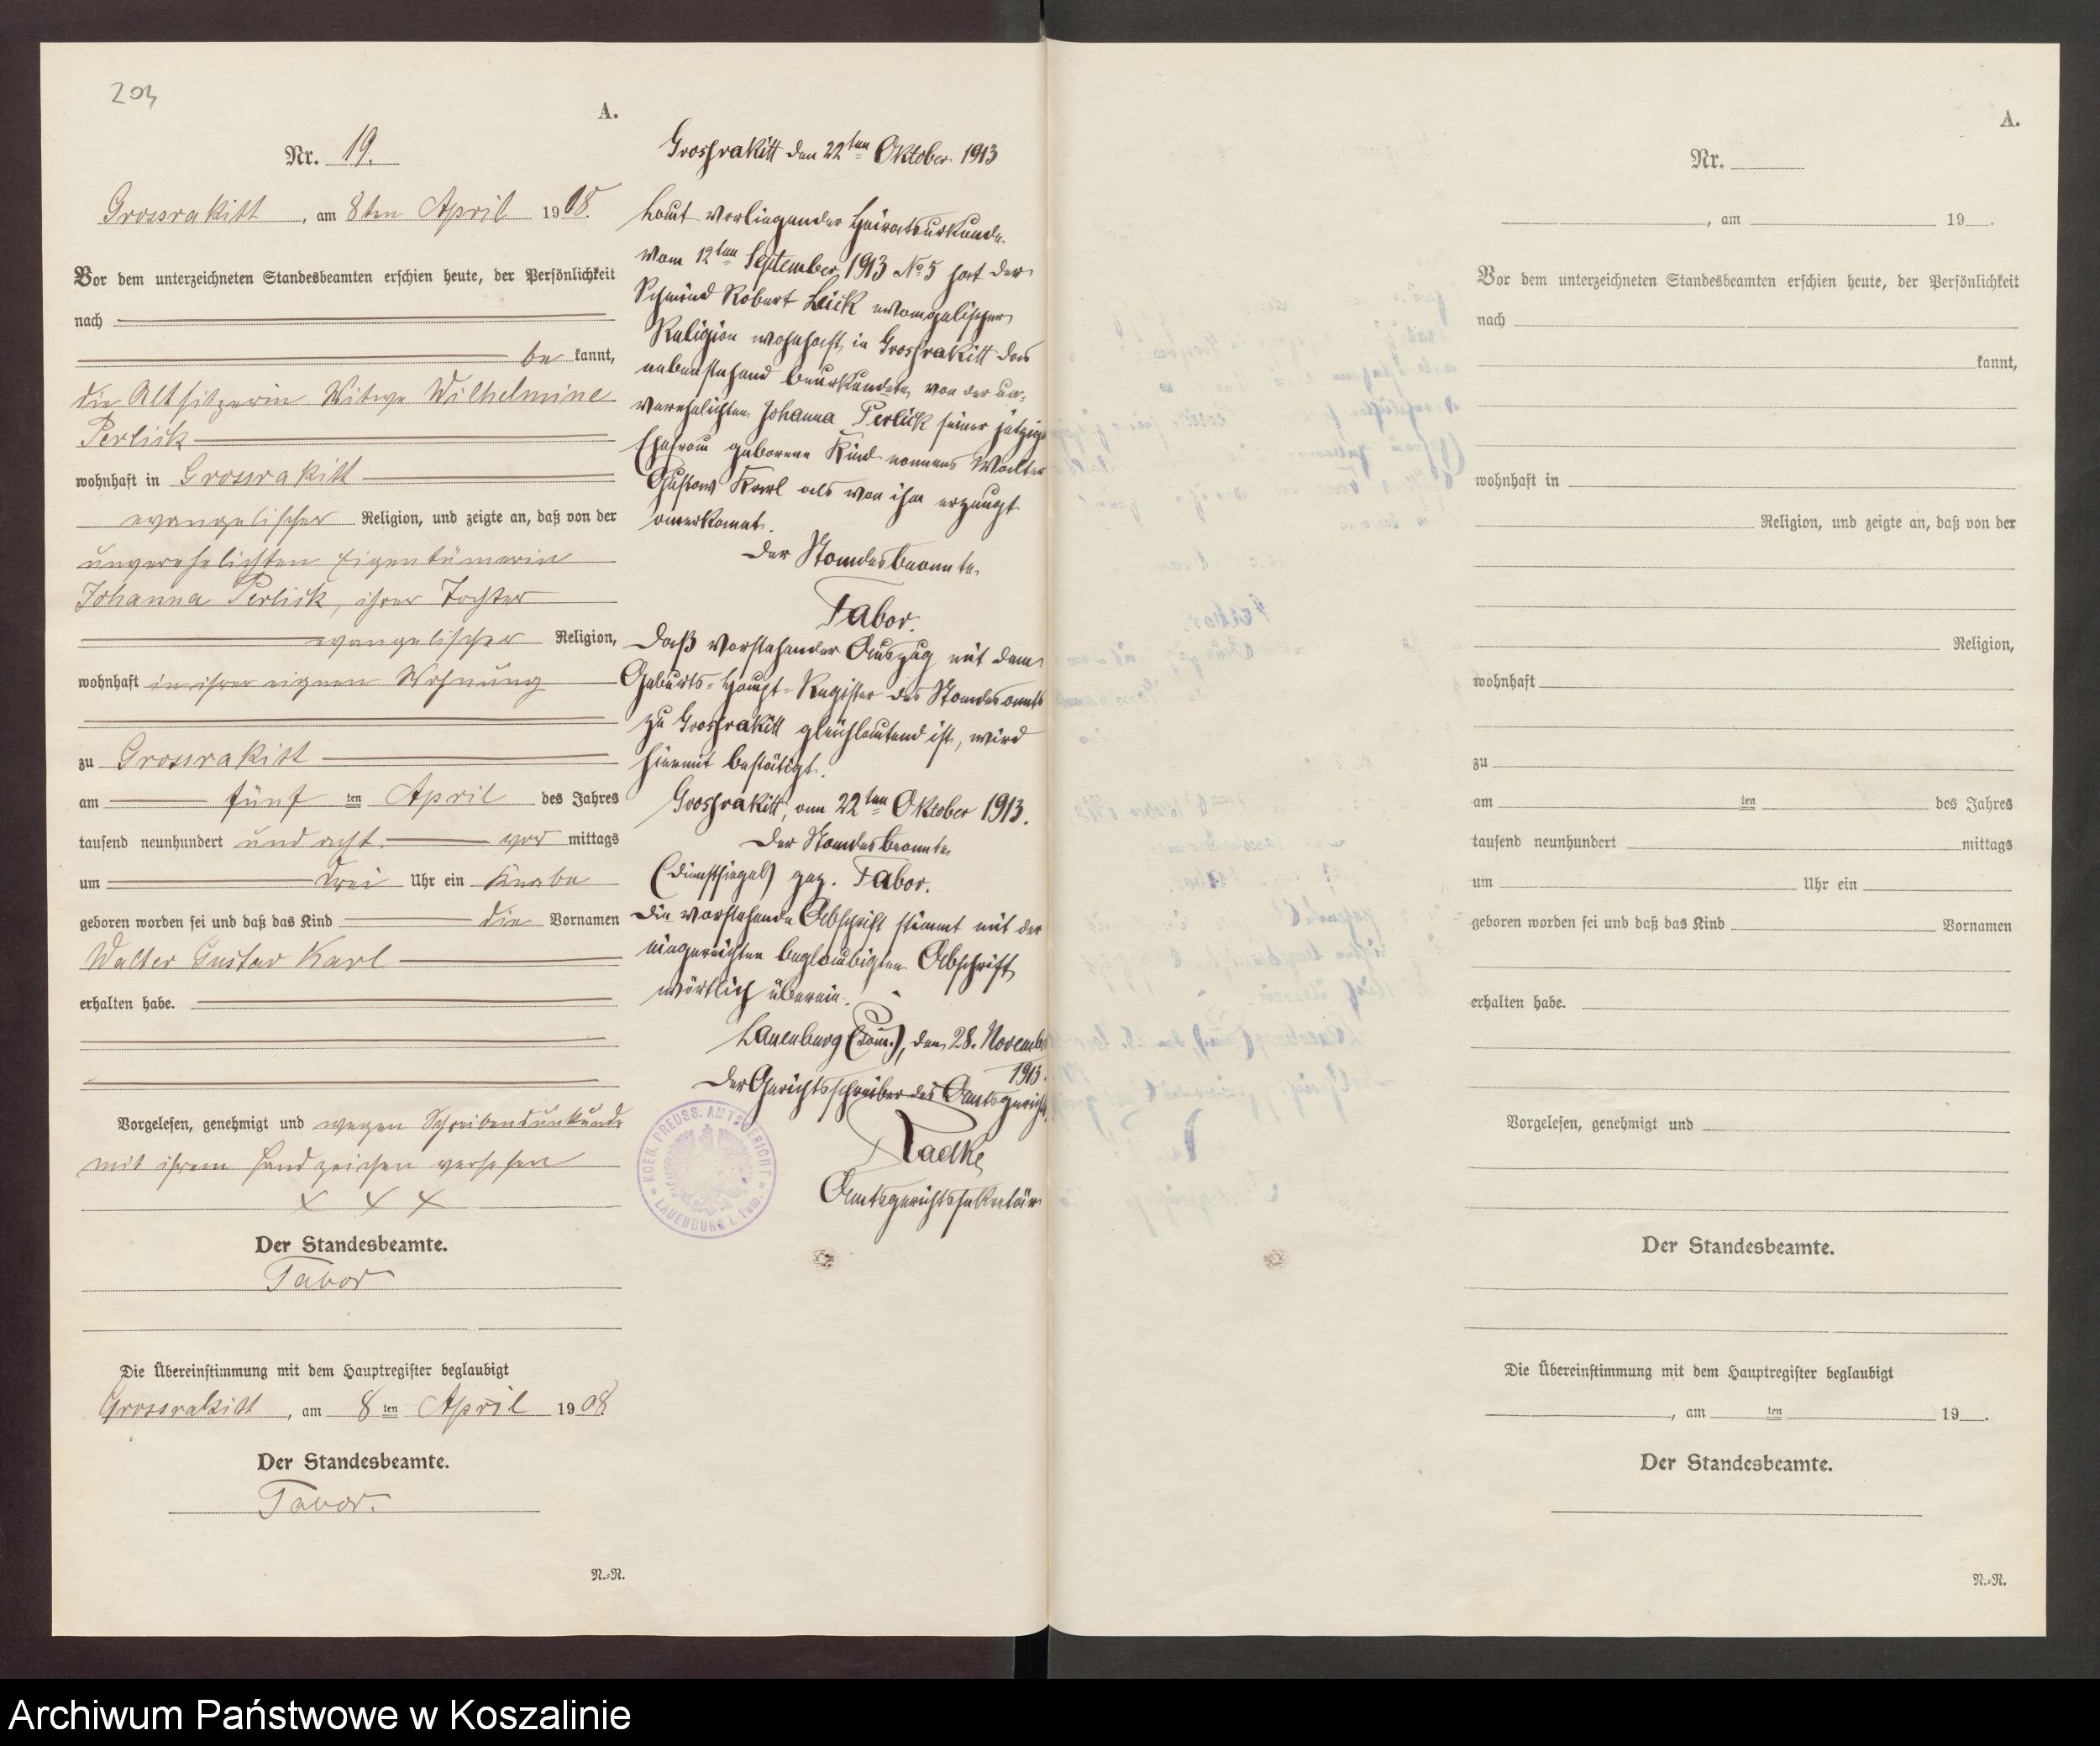 203
A.
Nr. 19.
Grossrakitt, am 8ten April 1908.
Vor dem unterzeichneten Standesbeamten erschien heute, der Persönlichkeit
nach
be kannt,
die Altsitzerin Witwe Wilhelmine
Perlick
wohnhaft in Grossrakitt
evangelischer Religion, und zeigte an, daß von der
unverehelichten Eigentümerin
Johanna Perlick, ihrer Tochter
evangelischer Religion,
wohnhaft in ihrer eignen Wohnung
zu Grossrakitt
am fünf ten April des Jahres
tausend neunhundert und acht vor mittags
um drei Uhr ein Knabe
geboren worden sei und daß das Kind die Vornamen
Walter Gustav Karl
erhalten habe.
Vorgelesen, genehmigt und wegen Schreibensunkunde
mit ihrem Handzeichen versehen
x x x
Der Standesbeamte.
Tabor
Die Übereinstimmung mit dem Hauptregister beglaubigt
Grossrakitt, am 8 ten April 1908
Der Standesbeamte.
Tabor.
N.=R.
Grossrakitt den 22ten Oktober 1913
Laut vorliegender Heiratsurkunde
vom 12ten September 1913 No 5 hat der
Schmied Robert Leick evangelischer
Religion wohnhaft in Grossrakitt das
nebenstehend beurkundete, von der un-
verehelichten Johanna Perlick seiner jetzigen
Ehefrau geborene Kind namens Walter
Gustav Karl als von ihm erzeugt
anerkannt.
Der Standesbeamte
Tabor.
Daß vorstehender Auszug mit dem
Geburts-Haupt-Register des Standesamts
zu Grossrakitt gleichlautend ist, wird
hiermit bestätigt.
Grossrakitt, am 22ten Oktober 1913.
Der Standesbeamte
(Dienstsiegel) gez. Tabor.
Die vorstehende Abschrift stimmt mit der
eingereichten beglaubigten Abschrift
wörtlich überein.
Lauenburg (Pom.), den 28. November
1913.
Der Gerichtsschreiber des Amtsgerichts.
Radke
Amtsgerichtssekretär
KOEN. PREUSS. AMTSGERICHT
LAUENBURG i. Pom.
A.
Nr.
, am 19 .
Vor dem unterzeichneten Standesbeamten erschien heute, der Persönlichkeit
nach
kannt,
wohnhaft in
Religion, und zeigte an, daß von der
Religion,
wohnhaft
zu
am ten des Jahres
tausend neunhundert mittags
um Uhr ein
geboren worden sei und daß das Kind Vornamen
erhalten habe.
Vorgelesen, genehmigt und
Der Standesbeamte.
Die Übereinstimmung mit dem Hauptregister beglaubigt
, am ten 19 .
Der Standesbeamte.
N.=R.
Archiwum Państwowe w Koszalinie